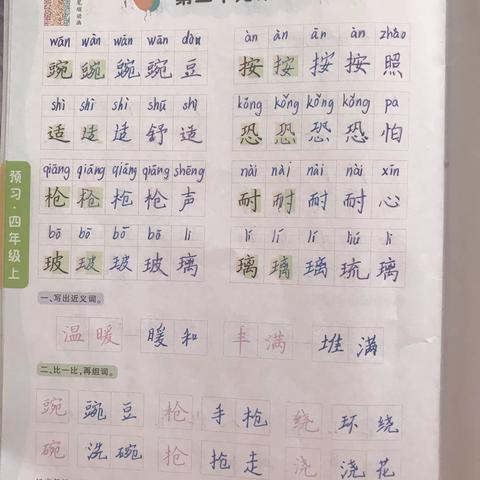 wān wān wān wān dòu
豌 豌 豌 豌 豆
àn àn àn àn zhào
按 按 按 按 照
shì shì shì shū shì
适 适 适 舒 适
kǒng kǒng kǒng kǒng pà
恐 恐 恐 恐 怕
qiāng qiāng qiāng qiāng shēng
枪 枪 枪 枪 声
nài nài nài nài xīn
耐 耐 耐 耐 心
bō bō bō bō li
玻 玻 玻 玻 璃
lí lí lí liú lí
璃 璃 璃 琉 璃
预习·四年级上
一、写出近义词。
温暖 — 暖和 丰满 — 堆满
二、比一比,再组词。
豌 豌豆 枪 手枪 绕 环绕
碗 洗碗 抢 抢走 浇 浇花